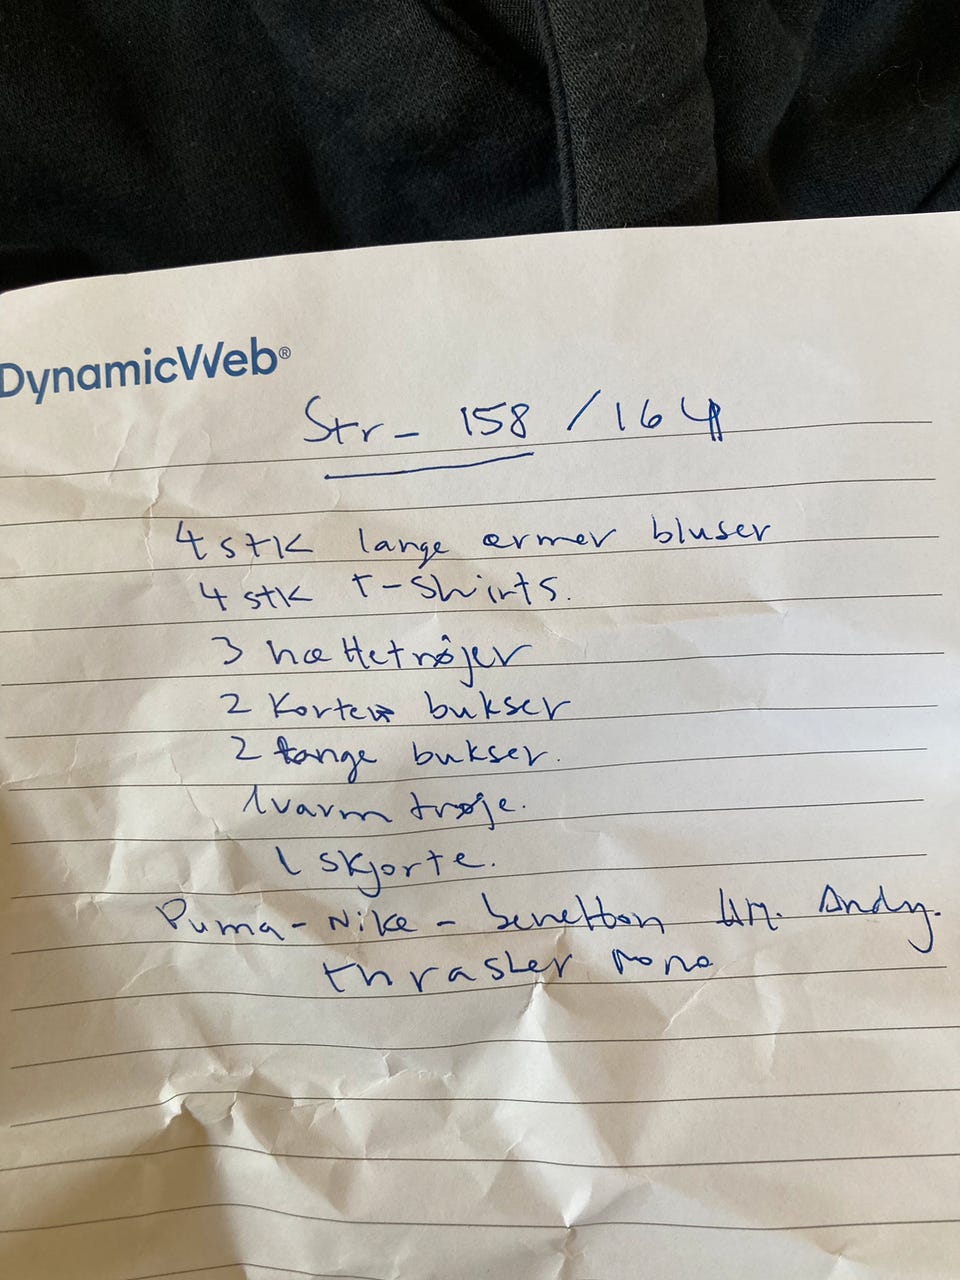 DynamicWeb®
Str- 158/164
4 stk lange ærmer bluser
4 stk T-Shirts.
3 hættetrøjer
2 Korte bukser
2 lange bukser.
1 varm trøje.
1 skjorte.
Puma-Nike-benetton HM. Andy.
thrasher